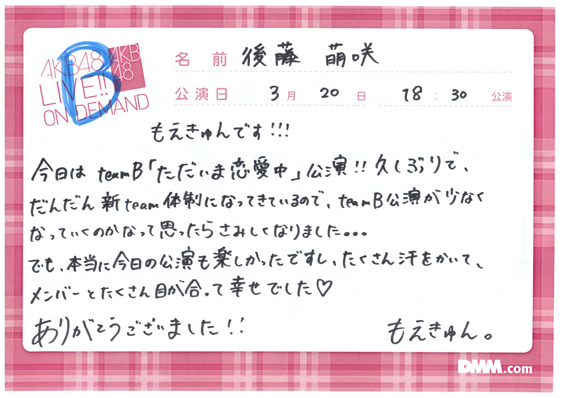 AKB48 AKB48
LIVE!!
ON DEMAND
B
名前 後藤 萌咲
公演日 3月 20日 18:30 公演
もえきゅんです!!!
今日は teamB「ただいま恋愛中」公演!! 久しぶりで、
だんだん 新team 体制になってきているので、teamB公演が少なく
なっていくのかなって思ったらさみしくなりました...
でも、本当に今日の公演も楽しかったですし、たくさん汗をかいて、
メンバーとたくさん目が合って幸せでした♡
ありがとうございました!!
もえきゅん。
DMM.com